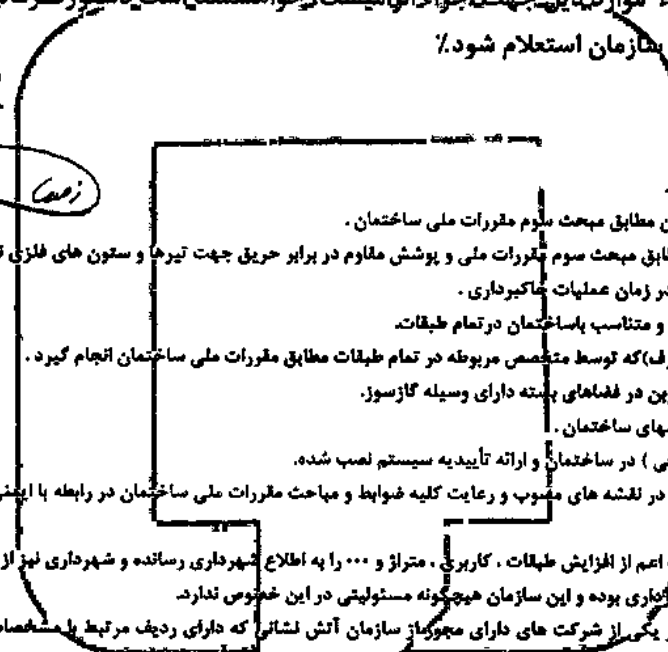 سازمان استعلام شود٪
مطابق مبحث سوم مقررات ملی ساختمان .
مطابق مبحث سوم مقررات ملی و پوشش مقاوم در برابر حریق جهت تیرها و ستون های فلزی
در زمان عملیات خاکبرداری .
و متناسب باساختمان درتمام طبقات.
که توسط متخصص مربوطه در تمام طبقات مطابق مقررات ملی ساختمان انجام گیرد .
در فضاهای بسته دارای وسیله گازسوز.
ساختمان .
) در ساختمان و ارائه تأییدیه سیستم نصب شده.
در نقشه های مصوب و رعایت کلیه ضوابط و مباحث مقررات ملی ساختمان در رابطه با ایمنی
اعم از افزایش طبقات ، کاربری ، متراژ و ... را به اطلاع شهرداری رسانده و شهرداری نیز از
بوده و این سازمان هیچگونه مسئولیتی در این خصوص ندارد.
یکی از شرکت های دارای مجوز از سازمان آتش نشانی که دارای ردیف مرتبط با مشخصات